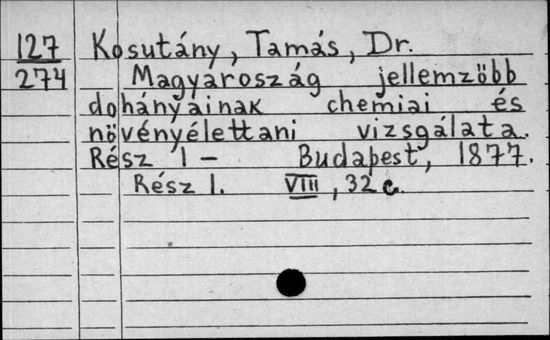 127 Kosutány, Tamás, Dr.
274 Magyaroszág jellemzöbb
dohányainak chemiai és
növényélettani vizsgálata.
Rész 1 – Budapest, 1877.
Rész 1. VIII, 32 c.